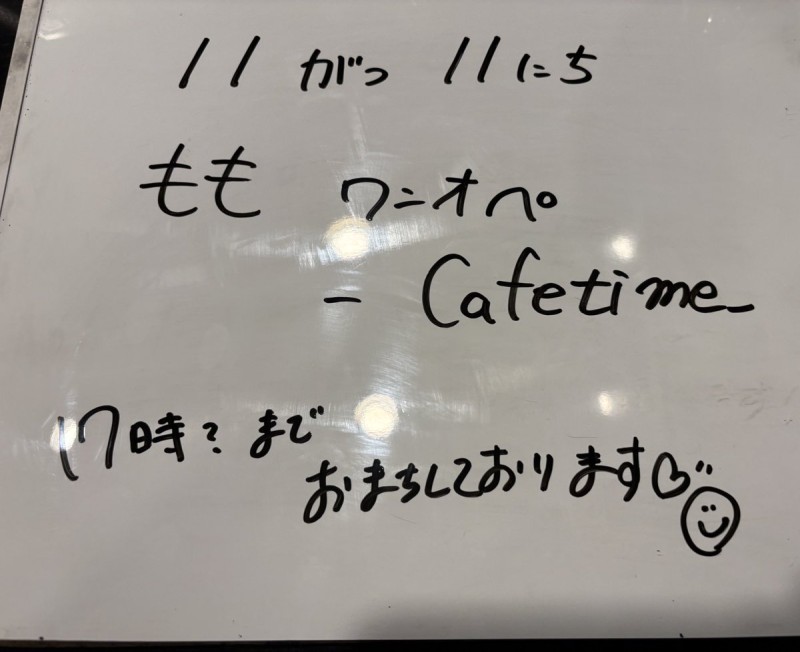 11 がつ 11にち
もも ワニオペ
- Cafetime -
17時?まで
おまちしております♡